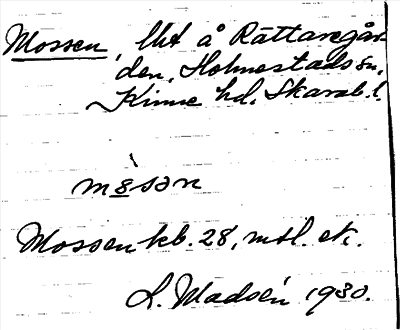 Mossen, lht å Rättaregår-
den, Holmestads sn,
Kinne hd. Skarab. l.
mɵsən
Mossen kb. 28, mtl. etc.
L. Madsén 1930.